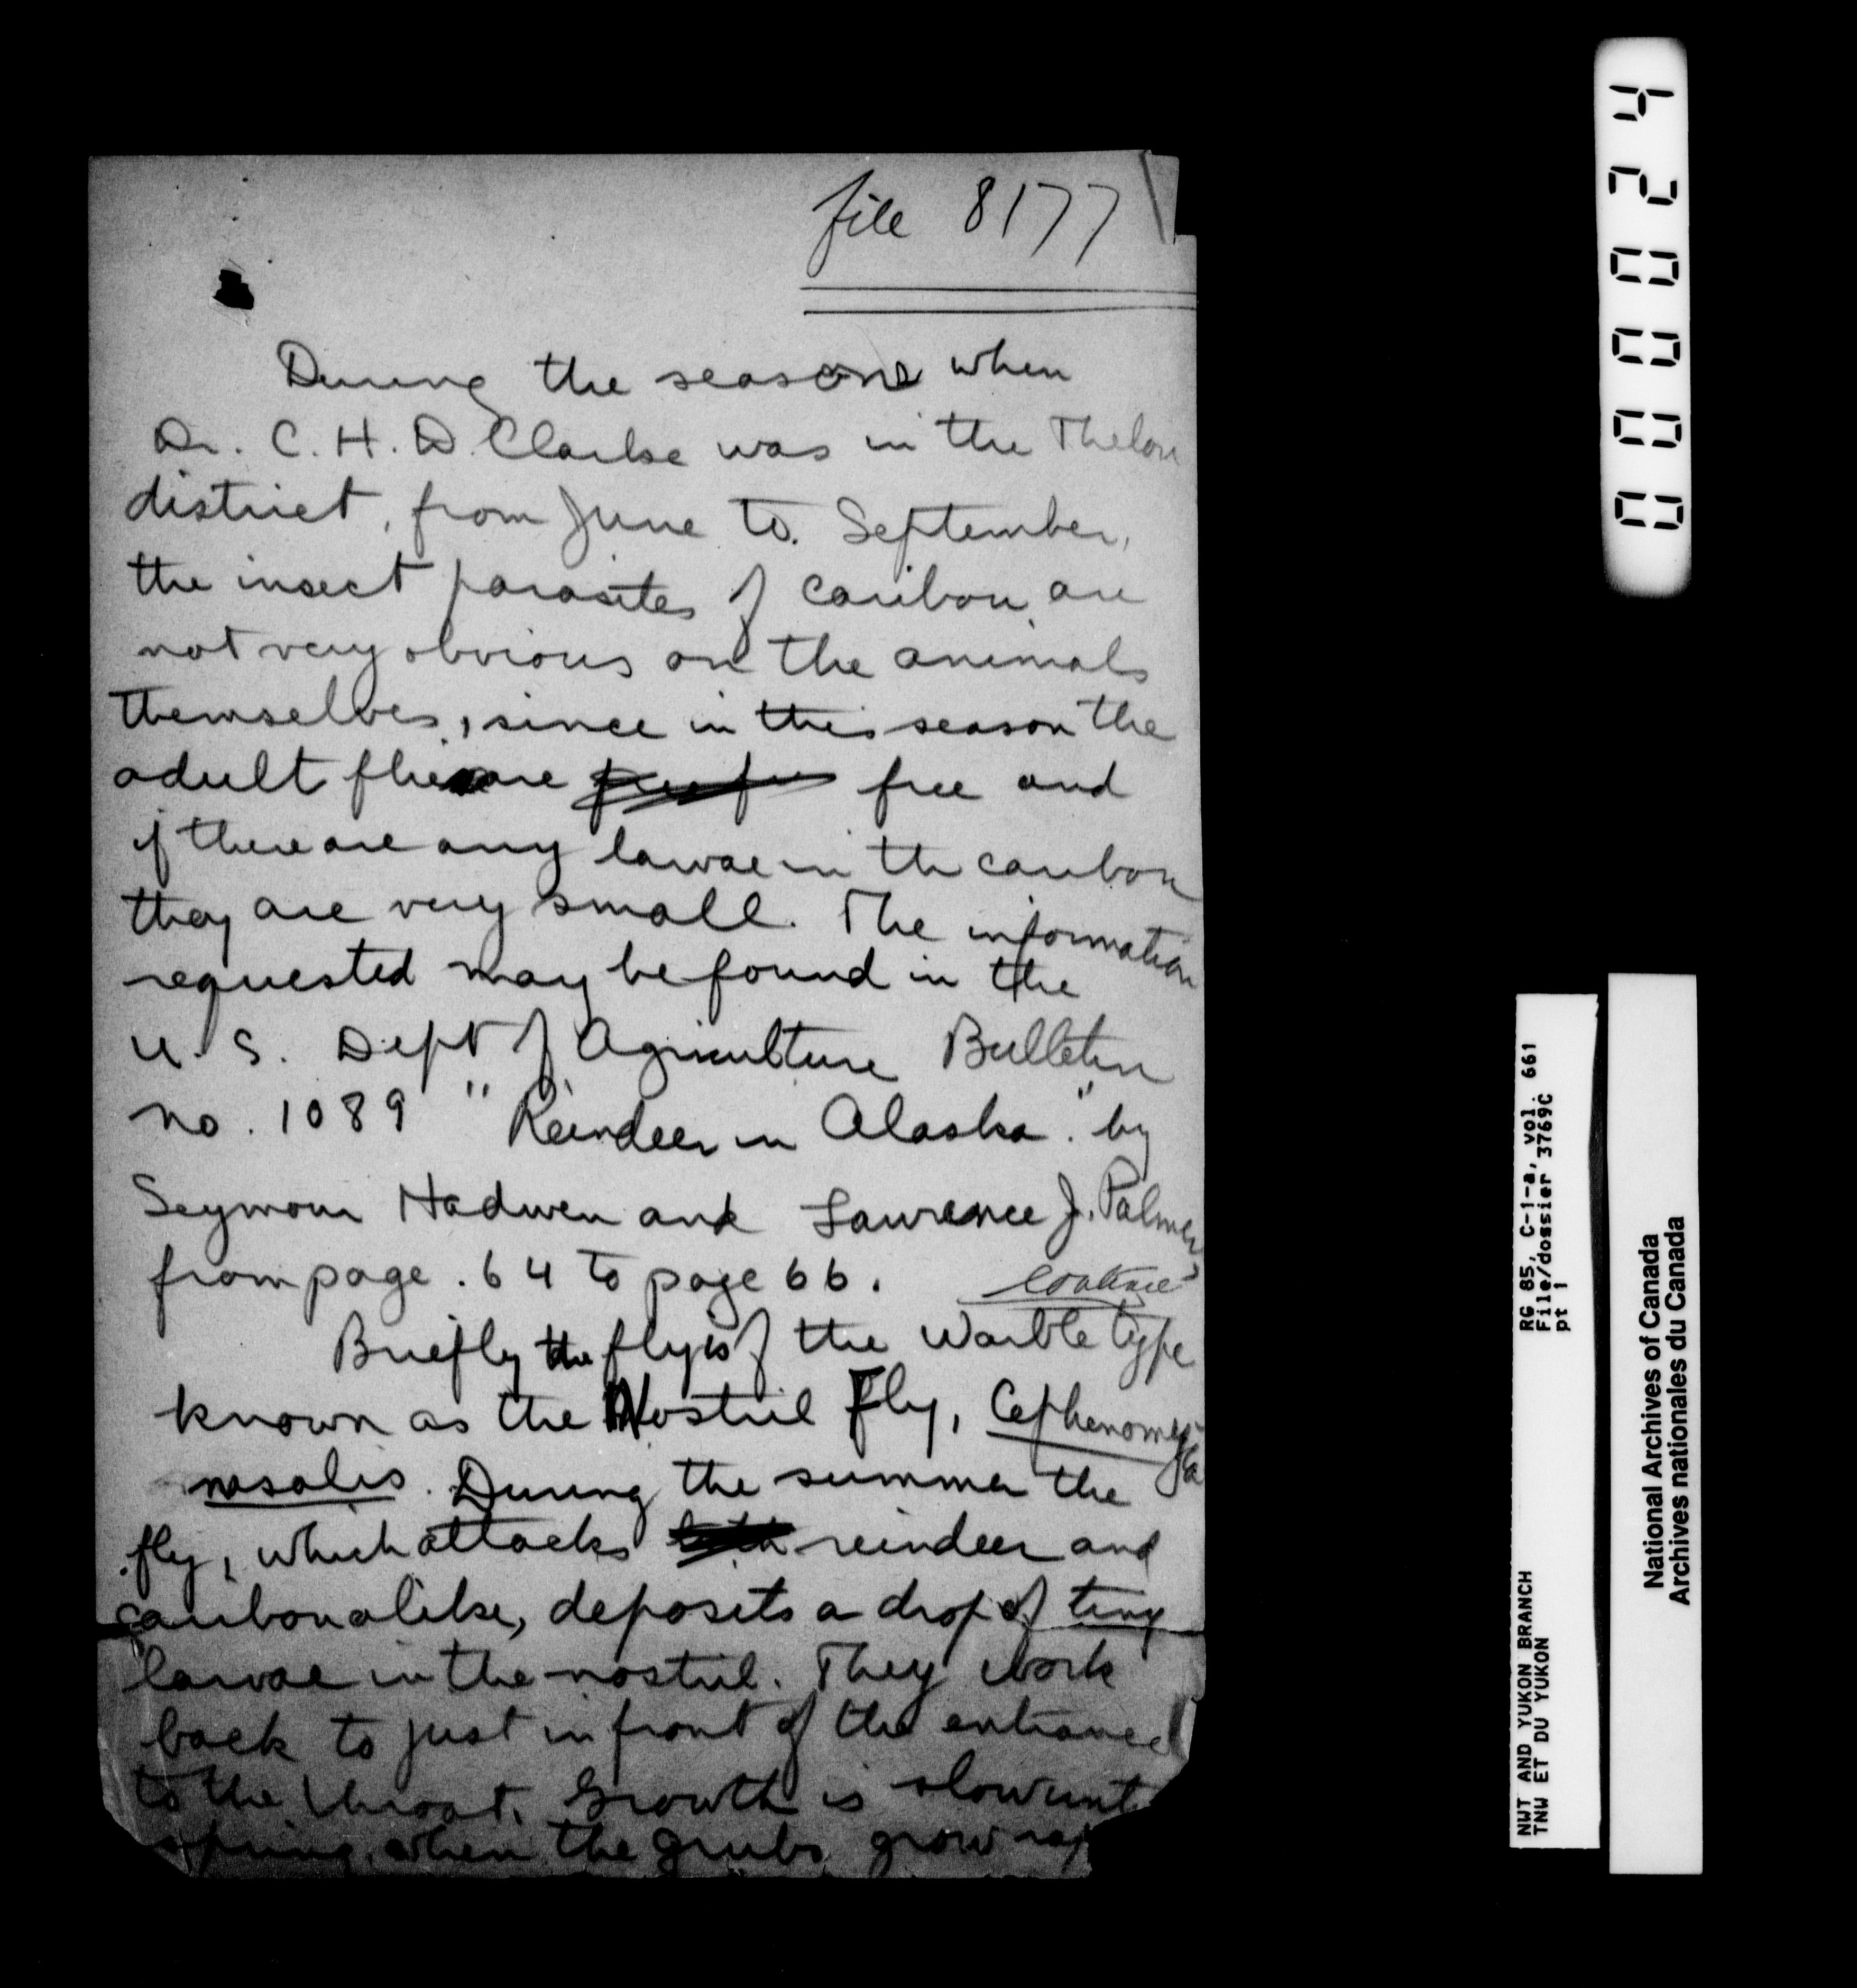 file 8177
During the seasons when
Dr. C. H. D. Clarke was in the Thelon
district, from June to September,
the insect parasites of caribou are
not very obvious on the animals
themselves, since in this season the
adult flies are free and
if there are any larvae in the caribou
they are very small. The information
requested may be found in the
U. S. Dept of Agriculture Bulletin
no. 1089 "Reindeer in Alaska." by
Seymour Hadwen and Lawrence J. Palmer
from page. 64 to page 66.
continue
Briefly the fly is of the Warble type
known as the Nostril Fly, Cephenomyia
nasalis. During the summer the
fly, which attacks reindeer and
caribou alike, deposits a drop of tiny
larvae in the nostril. They work
back to just in front of the entrance
to the throat. Growth is slow unt
spring, when the grubs grow rap
00024
RG 85, C-1-a, vol. 661
File/dossier 3769C
pt 1
NWT AND YUKON BRANCH
TNW ET DU YUKON
National Archives of Canada
Archives nationales du Canada